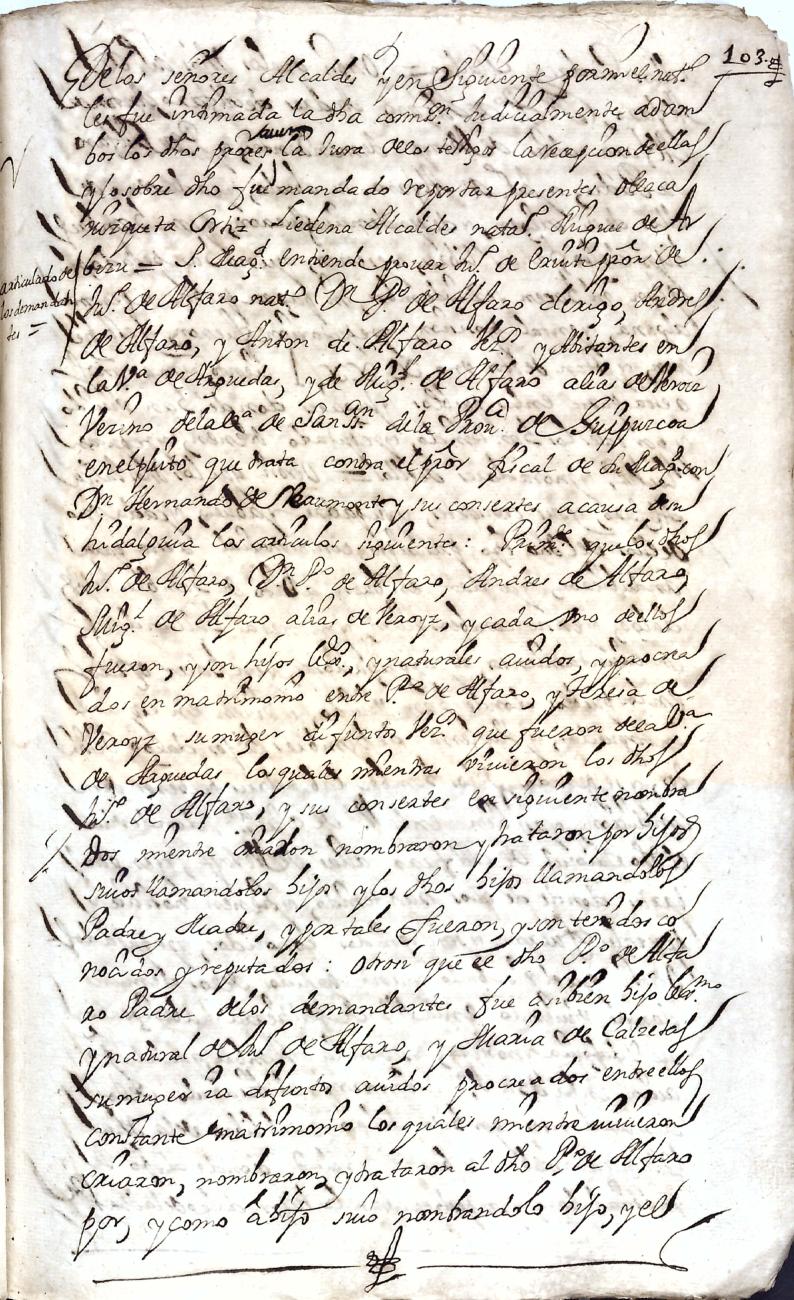 103.
De los señores Alcaldes y en siguiente por mi el nat.º
les fue intimada la dha comis.on Judicialmente a dam
bos los dhos prõres la Jura de los testigos la recepcion de ellos
y lo sobre dho fue mandado reportar presentes
Ortiz Liedena Alcaldes nat.s de Ar
bizu = S. Mag.d entiende provar Ju.º de prõr de
articulado de
los demandan
tes =
Ju.º de Alfaro nat.º Dn P.º de Alfaro clerigo, Andres
de Alfaro, y Anton de Alfaro Vez.s y Abitantes en
la V.a de Arguedas, y de Mig.l de Alfaro alias de Veroiz
Vezino de la V.a de San Sn. de la Prou.a de Guipuzcoa
en el pleito que trata contra el prõr fiscal de su Mag.d con
Dn Hernando de Beaumonte y sus consertes a causa de su
hidalguia los articulos siguientes: Prim.te que los dhos
Ju.º de Alfaro, Dn P.º de Alfaro, Andres de Alfaro,
Mig.l de Alfaro alias de Veroyz, y cada uno de ellos
fueron, y son hijos leg.mos, y naturales auidos, y procrea
dos en matrimonio entre P.º de Alfaro, y Teresa de
Veroyz su muger difuntos Vez.s que fueron de la V.a
de Arguedas los quales mientras vivieron los dhos
Ju.º de Alfaro, y sus consertes en siguiente nombra
dos mentre criaron nombraron y trataron por hijos
suios llamandolos hijos y los dhos hijos llamandolos
Padre y Madre, y por tales fueron, y son tenidos co
nocidos y reputados: otrosi que el dho P.º de Alfa
ro Padre de los demandantes fue asibien hijo leg.mo
y natural de Ju.º de Alfaro, y Maria de Calzetas
su muger ia difuntos auidos procreados entre ellos
constante matrimonio los quales mentre vivieron
criaron, nombraron, y trataron al dho P.º de Alfaro
por, y como a hijo suio nombrandolo hijo, y el